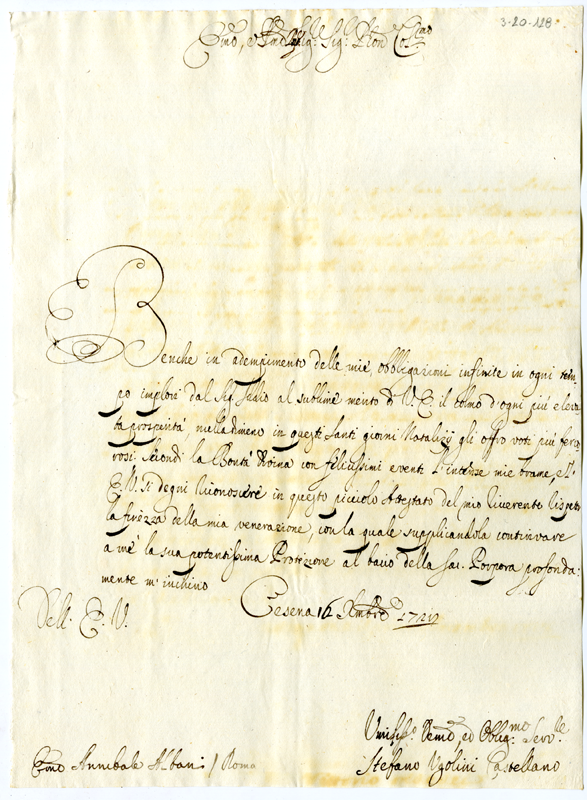 3-20-128
Emo, e Rmo Sig.r Sig.r Pron Col.mo
Benche in adempimento delle mie obbligazioni infinite in ogni tem-
po implori dal Sig. Iddio al sublime merito di V. E. il colmo d'ogni più eleva-
ta prosperità, nulladimeno in questi santi giorni Natalizij gli offro voti più fervo-
rosi. Secondi la Bontà Divina con felicissimi eventi l'intense mie brame, e l'
E. V. si degni riconoscere in questo picciolo attestato del mio riverente rispetto
la finezza della mia venerazione, con la quale supplicandola continuare
a me la sua potentissima Protezione al bacio della Sac. Porpora profonda-
mente m'inchino
Cesena 16 Xmbre
Dell' E. V.
Umiliss.o Devmo ed Obblig.mo Serv.re
Stefano Ugolini Castellano
Emo Annibale Albani / Roma